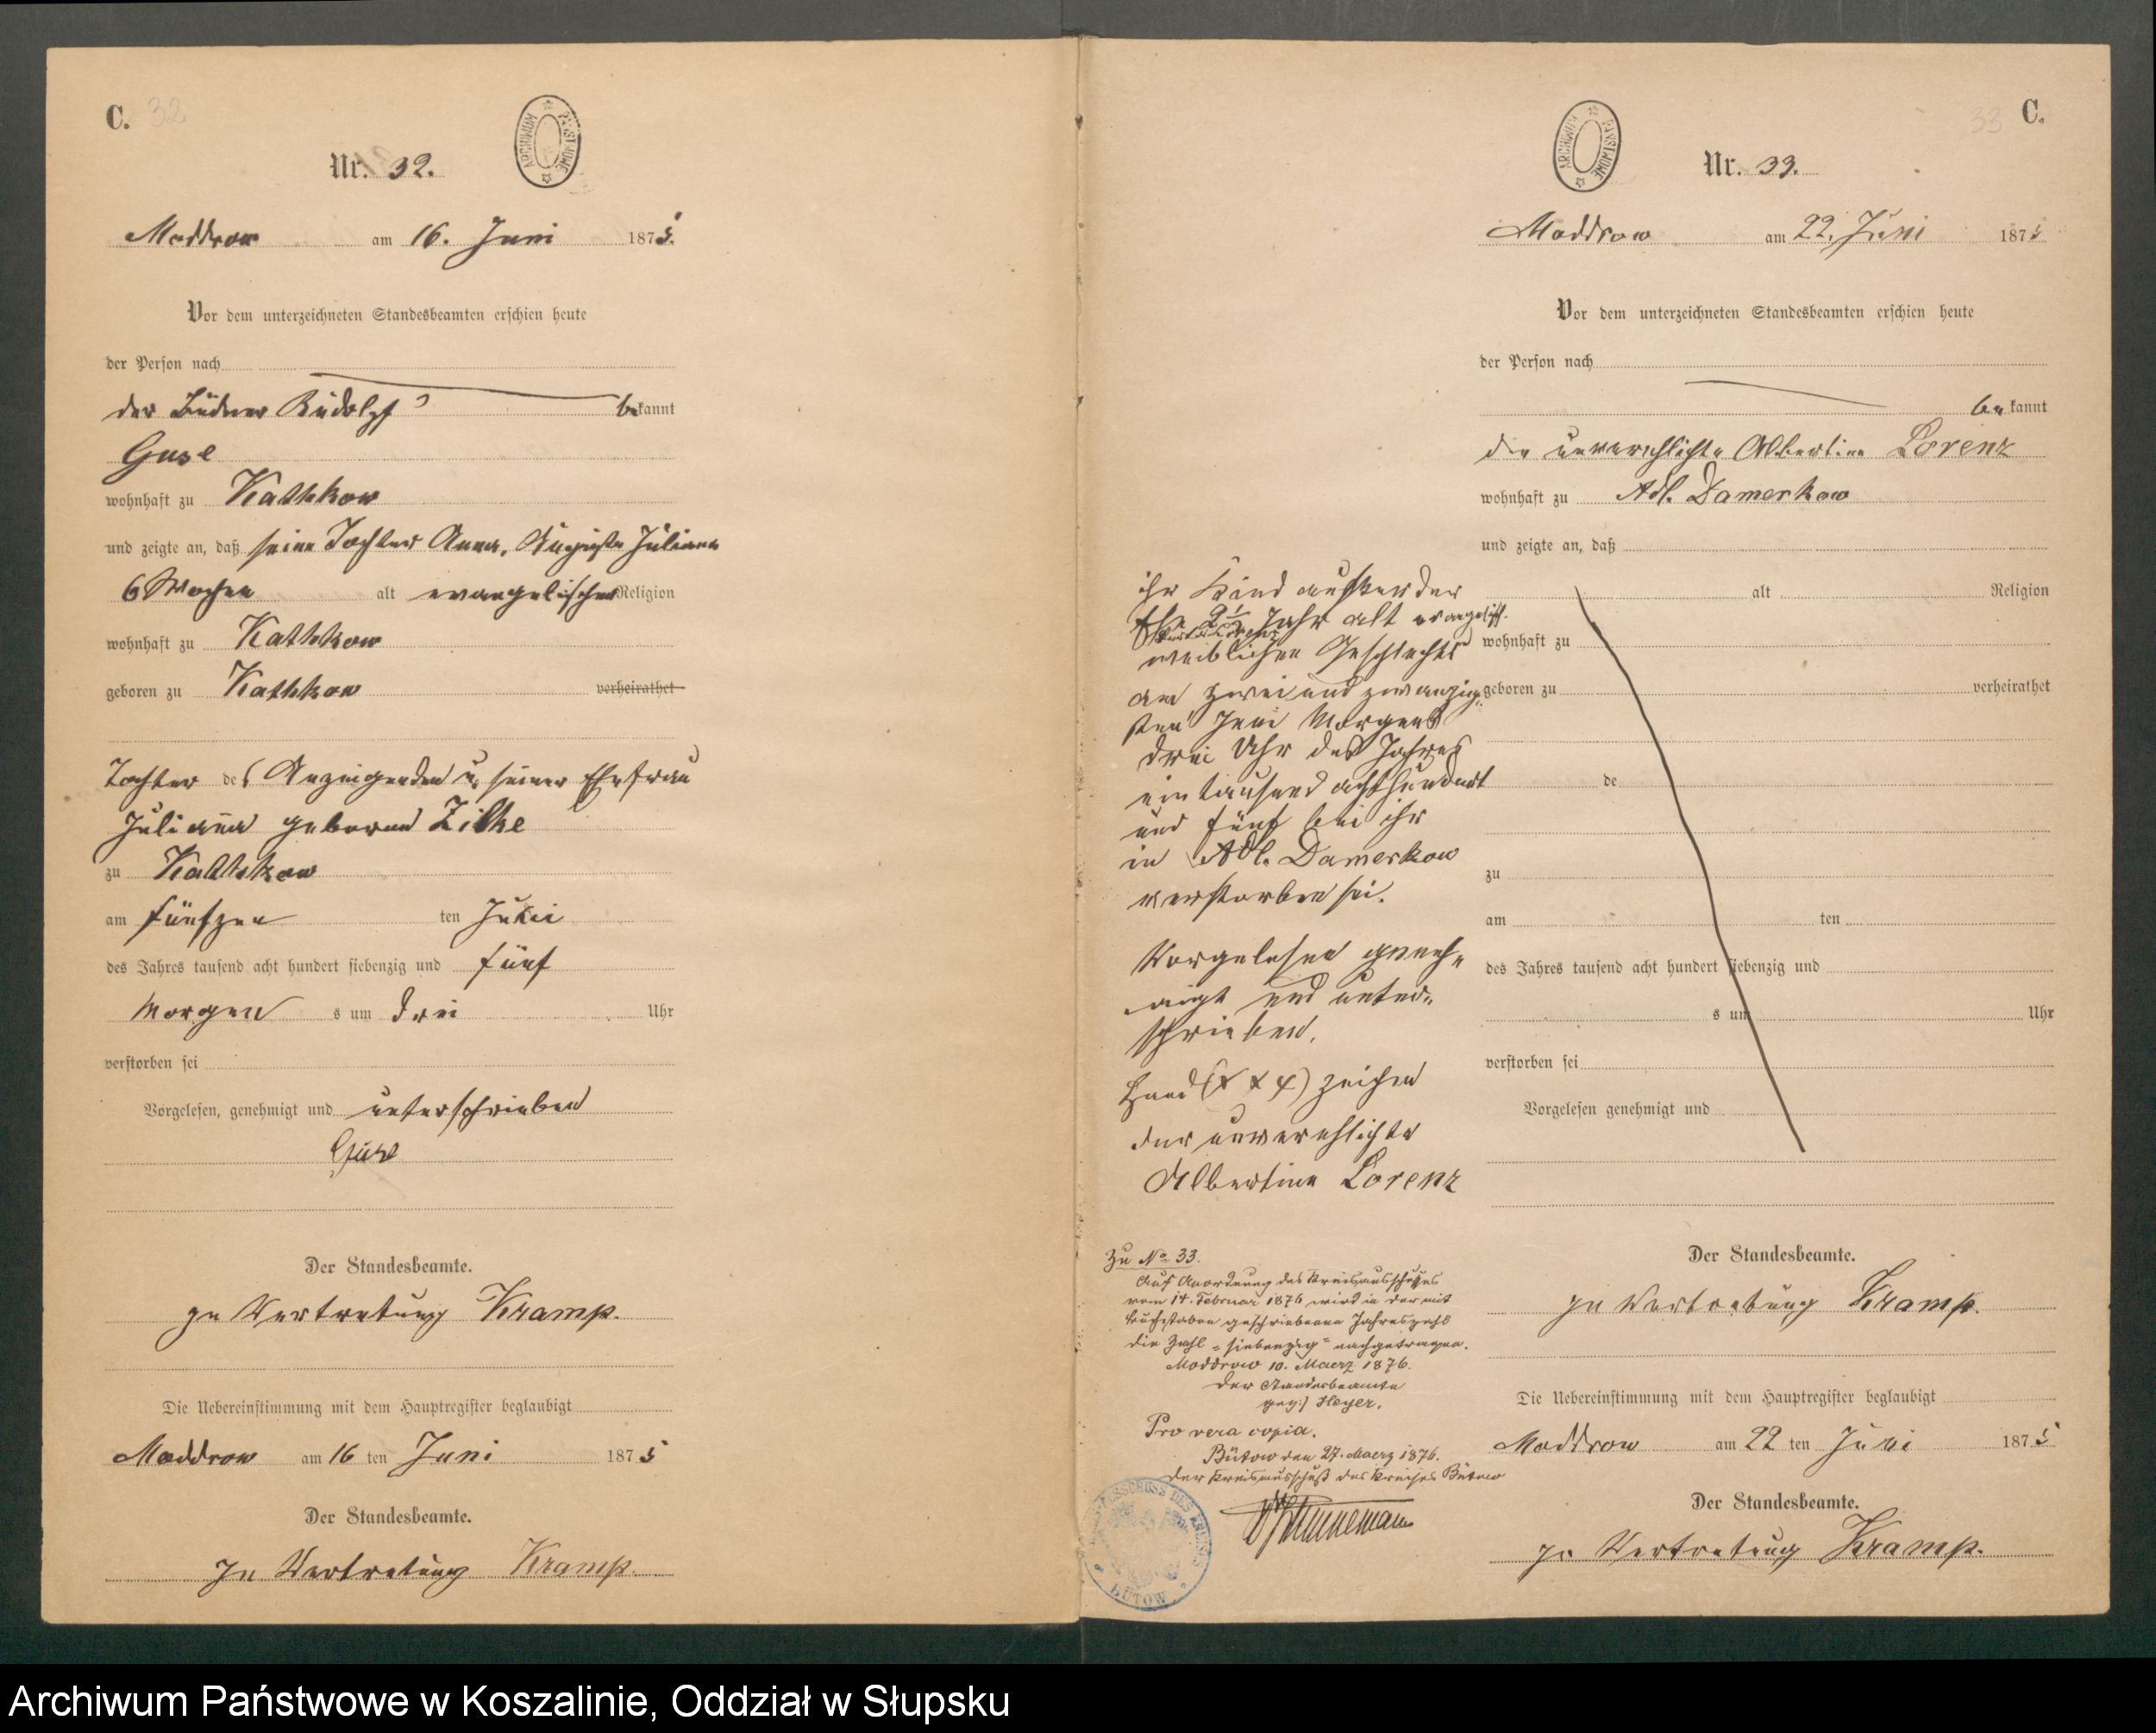 C. 32
ARCHIWUM PAŃSTWOWE
Nr. 32.
Moddrow am 16. Juni 1875.
Vor dem unterzeichneten Standesbeamten erschien heute
der Person nach
der Büdner Rudolf bekannt
Guse
wohnhaft zu Kathkow
und zeigte an, daß seine Tochter Anna, Auguste Juliana
6 Wochen alt evangelischer Religion
wohnhaft zu Kathkow
geboren zu Kathkow verheirathet
Tochter des Anzeigenden u. seiner Ehefrau
Juliana geborene Zilke
zu Kathkow
am fünfzen ten Juni
des Jahres tausend acht hundert siebenzig und fünf
Morgen s um drei Uhr
verstorben sei
Vorgelesen, genehmigt und unterschrieben
Guse
Der Standesbeamte.
In Vertretung Kramp.
Die Uebereinstimmung mit dem Hauptregister beglaubigt
Moddrow am 16 ten Juni 1875
Der Standesbeamte.
In Vertretung Kramp.
33 C.
ARCHIWUM PAŃSTWOWE
Nr. 33.
Moddrow am 22. Juni 1875
Vor dem unterzeichneten Standesbeamten erschien heute
der Person nach
bekannt
die unverehlichte Albertine Lorenz
wohnhaft zu Adl. Damerkow
und zeigte an, daß
alt Religion
wohnhaft zu
geboren zu verheirathet
de
zu
am ten
des Jahres tausend acht hundert siebenzig und
s um Uhr
verstorben sei
Vorgelesen genehmigt und
ihr Kind außer der
Ehe 2½ Jahr alt evangelisch.
weiblichen Geschlechts
am zwei und zwanzig-
sten Juni Morgens
drei Uhr des Jahres
ein tausend achthundert
und fünf bei ihr
in Adl. Damerkow
verstorben sei.
Vorgelesen geneh-
migt und unter-
schrieben.
Hand (x x x) zeichen
der unverehlichte
Albertine Lorenz
Zu No 33.
Auf Anordnung des Kreisausschusses
vom 14. Februar 1876 wird in der mit
Buchstaben geschriebenen Jahreszahl
die Zahl "siebenzig" nachgetragen.
Moddrow 10. Maerz 1876.
Der Standesbeamte
gez.) Heyer.
Pro vera copia.
Bütow den 27. Maerz 1876.
Der Kreisausschuß des Kreises Bütow
BÜTOW
Der Standesbeamte.
In Vertretung Kramp.
Die Uebereinstimmung mit dem Hauptregister beglaubigt
Moddrow am 22 ten Juni 1875
Der Standesbeamte.
In Vertretung Kramp.
Archiwum Państwowe w Koszalinie, Oddział w Słupsku